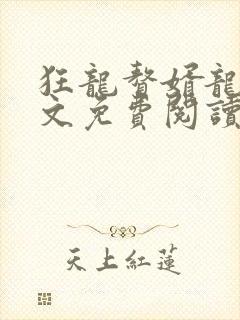 狂龍贅婿龍
文免費閱讀
天上紅蓮